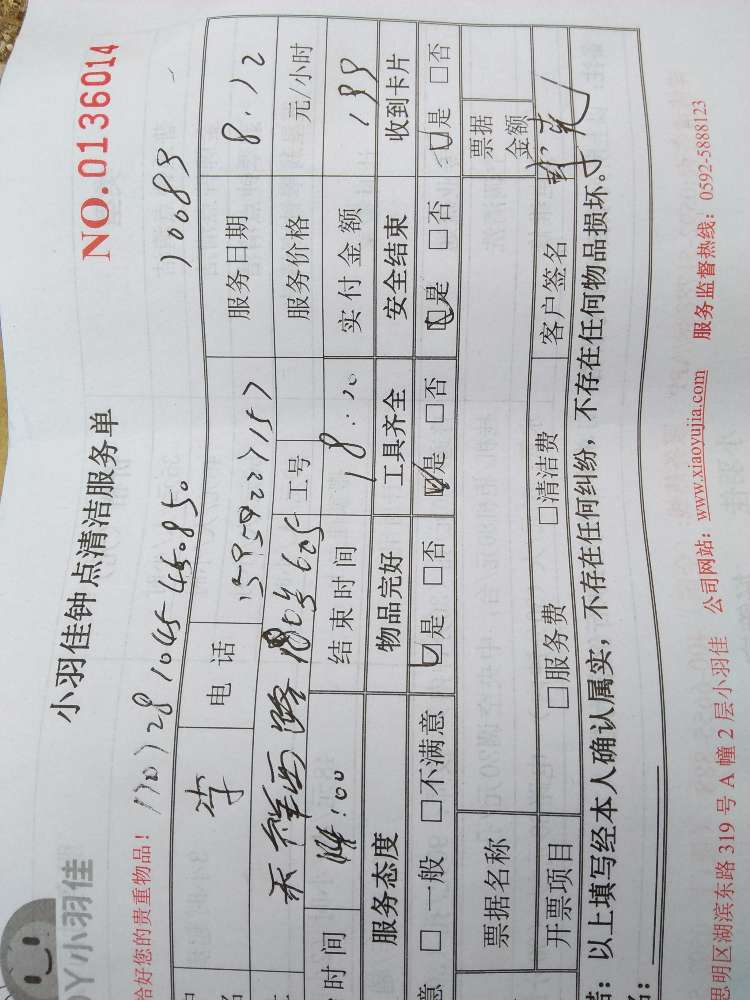 小羽佳钟点清洁服务单
NO.0136014
小羽佳
恰好您的贵重物品!
电话 服务日期 8.12
天祥西路 605 工号 服务价格 元/小时
时间 14:00 结束时间 18:20 实付金额 199
服务态度 物品完好 工具齐全 安全结束 收到卡片
意 □一般 □不满意 □是 □否 □是 □否 □是 □否 □是 □否
票据名称 票据金额
开票项目 □服务费 □清洁费 客户签名
: 以上填写经本人确认属实,不存在任何纠纷,不存在任何物品损坏。
思明区湖滨东路 319 号 A 幢 2 层小羽佳 公司网站: www.xiaoyujia.com 服务监督热线: 0592-5888123